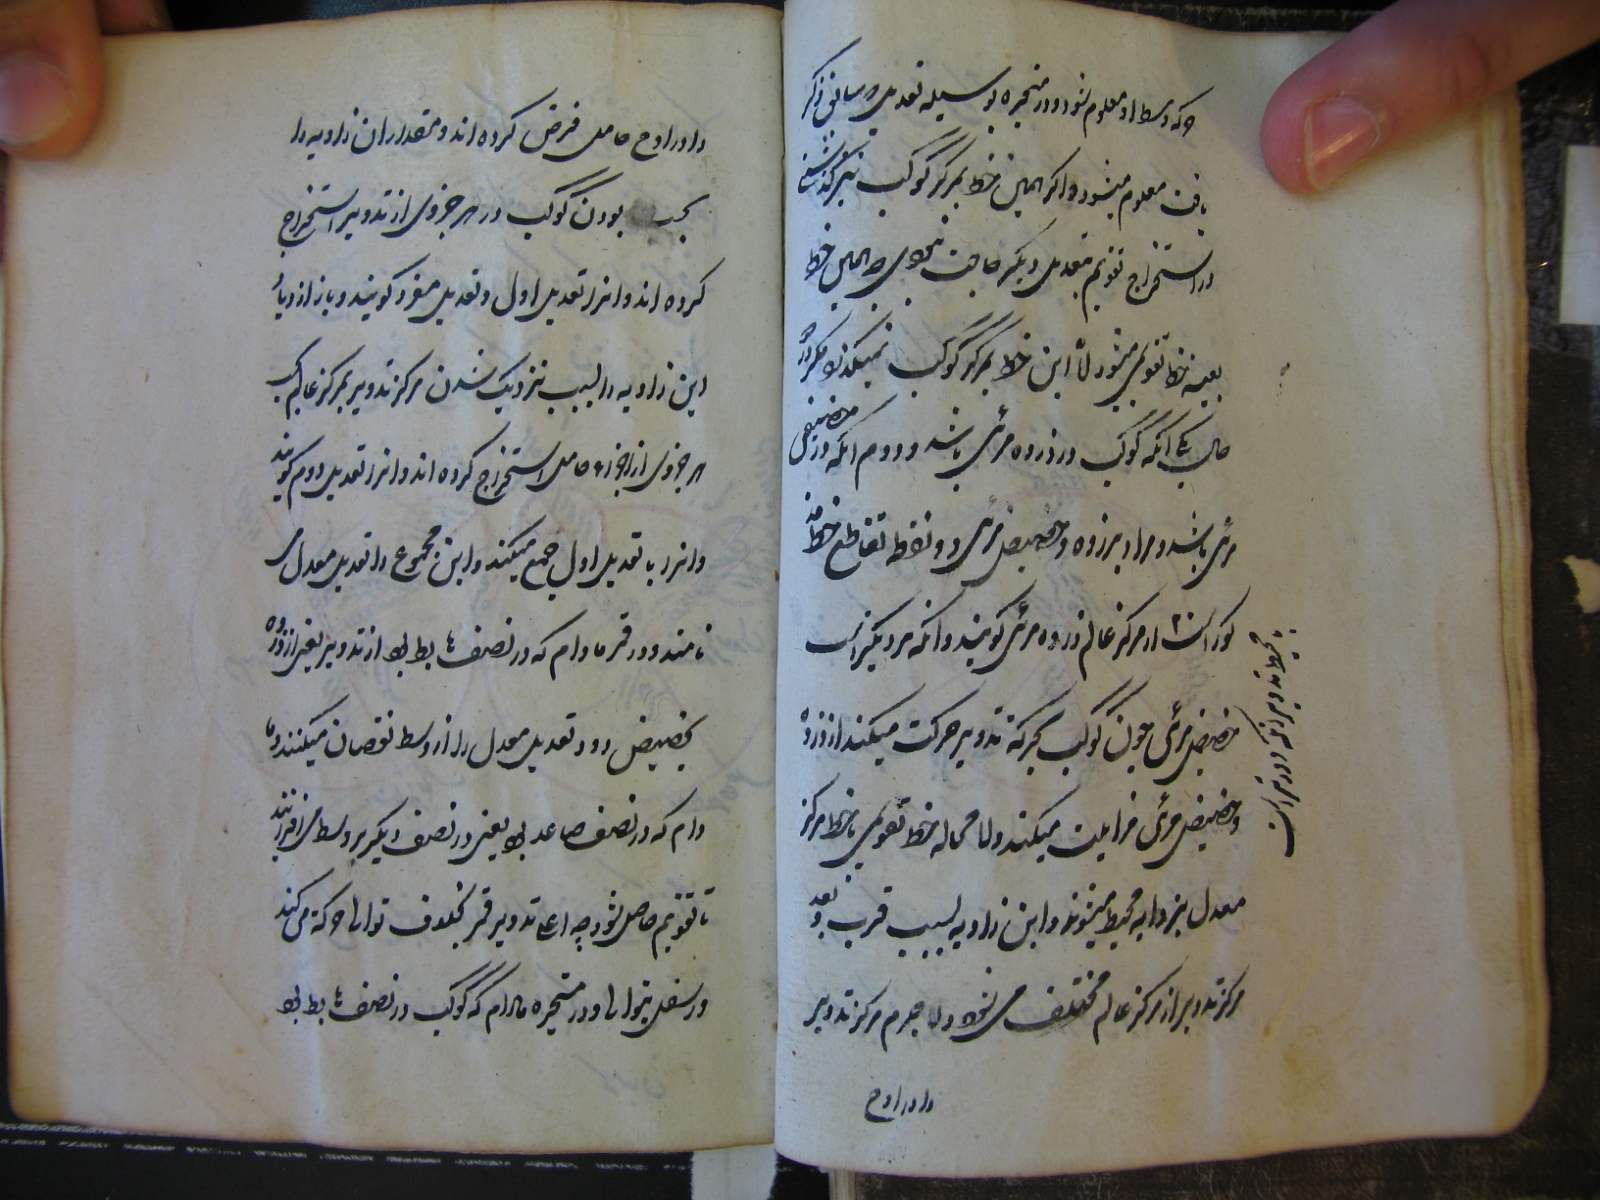 که وسط او معلوم شود و در متحیره بوسیله تعدیل در سابق ذکر
یافت معلوم میشود و اگر همین خط بمرکز کوکب نیز گذشتی
در استخراج تقویم بتعدیل دیگر حاجت نبودی چه همین خط
بعینه خط تقویمی میشود اما این خط بمرکز کوکب نمیگذرد مگر در دو
حال یکی آنکه کوکب در ذروه مرئی باشد و دوم آنکه در حضیض
مرئی باشد و مراد بذروه و حضیض مرئی دو نقطه تقاطع خط
مذکور است از مرکز عالم ذروه مرئی گویند و آنکه نزدیکتر است
حضیض مرئی چون کوکب بحرکة تدویر حرکت میکند از ذروه
و حضیض مرئی مزایلت میکند و لا محاله خط تقویمی با خط مرکز
معدل بزاویه محیط میشوند و این زاویه بسبب قرب و بعد
مرکز تدویر از مرکز عالم مختلف می شود و لا جرم مرکز تدویر
را در اوج
بمحیط تدویر آنکه دورتر است
را در اوج حامل فرض کرده اند و مقدار آن زاویه را
بحسب بودن کوکب در هر جزوی از تدویر استخراج
کرده اند و آنرا تعدیل اول و تعدیل مفرد گویند و باز از دیاد
این زاویه را بسبب نزدیک شدن مرکز تدویر بمرکز عالم بحسب
هر جزوی از اجزاء حامل استخراج کرده اند و آنرا تعدیل دوم گویند
و آنرا با تعدیل اول جمع میکنند و این مجموع را تعدیل معدل می
نامند و در قمر مادام که در نصف هابط بود از تدویر یعنی از ذروه
بحضیض رود تعدیل معدل را از وسط نقصان میکنند و ما
دام که در نصف صاعد بود یعنی در نصف دیگر بر وسط می افزایند
تا تقویم حاصل شود چه اعلی تدویر قمر بخلاف توالی حرکة می کند
و اسفل بتوالی و در متحیره مادام که کوکب در نصف هابط بود